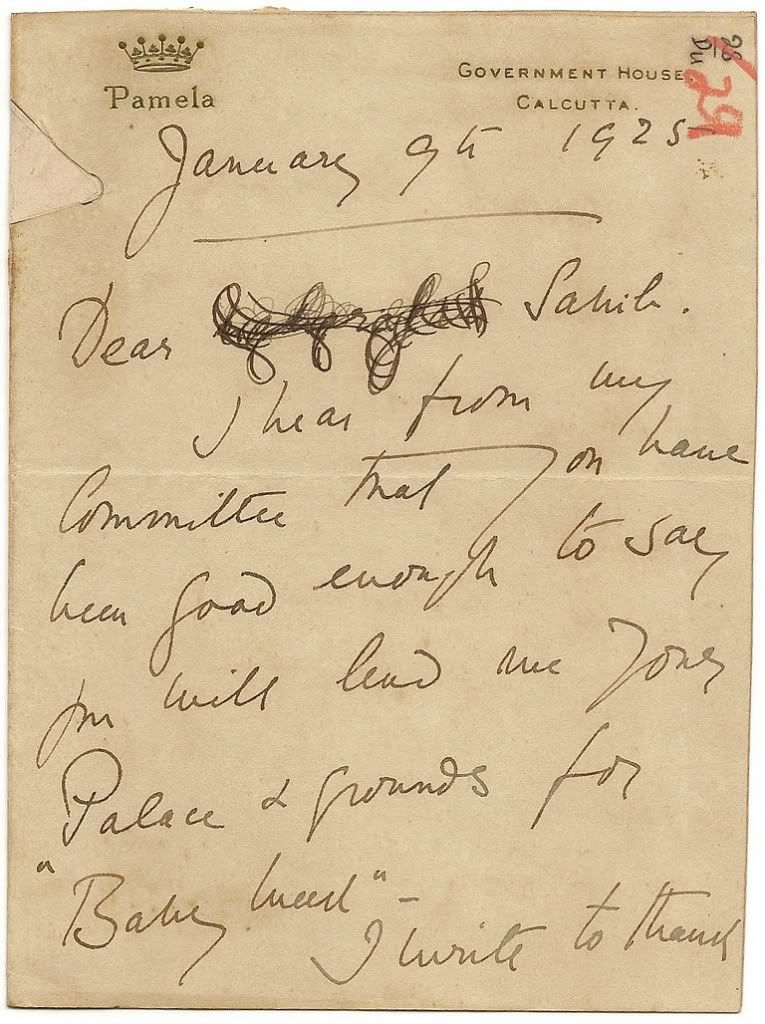 Pamela
GOVERNMENT HOUSE
CALCUTTA.
29
January 9th 1925
Dear Sahib.
I hear from my
Committee that you have
been good enough to say
you will lend me your
Palace & grounds for
"Baby Week" -
I write to thank